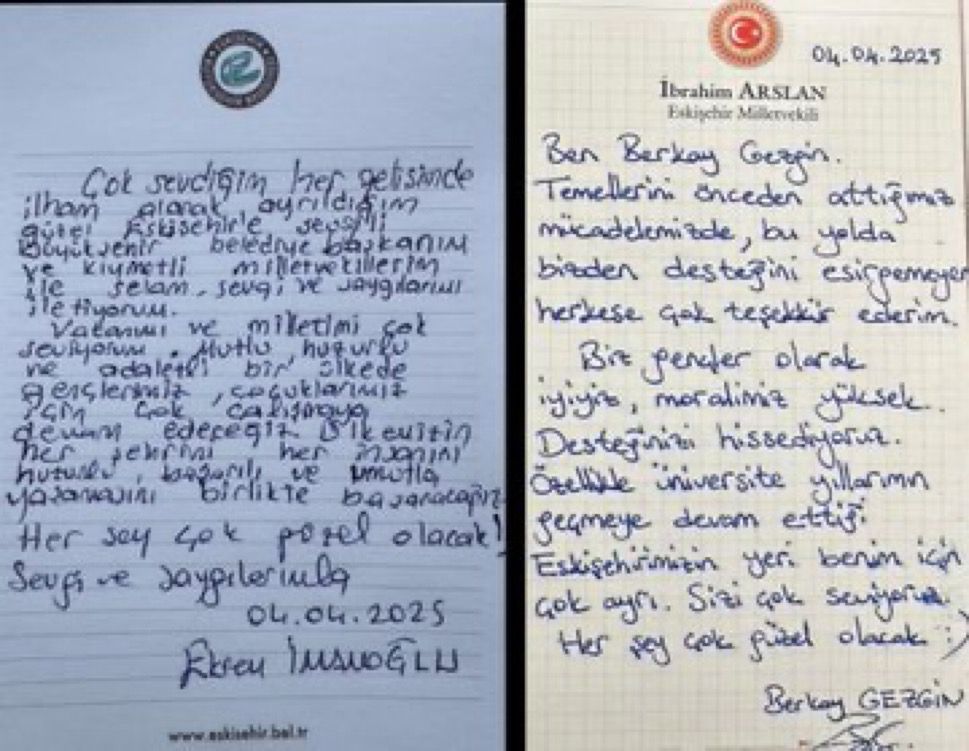 Çok sevdiğim her gelişimde
ilham alarak ayrıldığım
güzel Eskişehir'e sevgili
Büyükşehir belediye başkanım
ve kıymetli milletvekillerim
ile selam, sevgi ve saygılarımı
iletiyorum.
Vatanımı ve milletimi çok
seviyorum. Mutlu, huzurlu
ve adaletli bir ülkede
gençlerimiz, çocuklarımız
için çok çalışmaya
devam edeceğiz. Ülkemizin
her şehrini her insanını
huzurlu, başarılı ve umutla
yaşamasını birlikte başaracağız
Her şey çok güzel olacak!
Sevgi ve saygılarımla
04.04.2025
Ekrem İMAMOĞLU
www.eskisehir.bel.tr
04.04.2025
İbrahim ARSLAN
Eskişehir Milletvekili
Ben Berkay Gezgin.
Temellerini önceden attığımız
mücadelemizde, bu yolda
bizden desteğini esirgemeyen
herkese çok teşekkür ederim.
Biz gençler olarak
iyiyiz, moralimiz yüksek.
Desteğinizi hissediyoruz.
Özellikle üniversite yıllarımın
geçmeye devam ettiği
Eskişehirimizin yeri benim için
çok ayrı. Sizi çok seviyoruz.
Her şey çok güzel olacak :)
Berkay GEZGİN